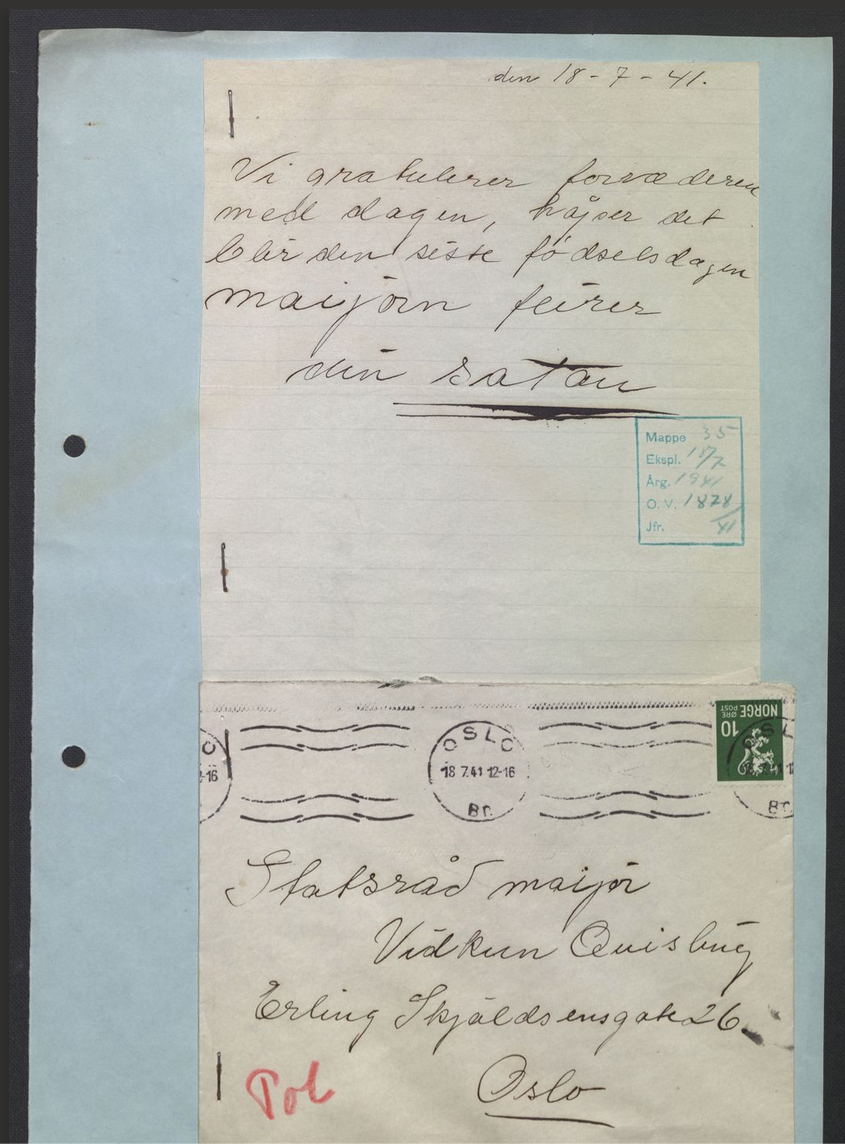 den 18-7-41.
Vi gratulerer forræderen
med dagen, håjser det
blir den siste fødselsdagen
maijorn feirer
din satan
Mappe 35
Ekspl. 18/7
Årg. 1941
O. V. 1828/41
Jfr.
NORGE
POST
10 ØRE
OSLO
18 7.41 12-16
Br.
Statsråd maijor
Vidkun Quisling
Erling Skjåldsensgate 26.
Oslo
Pol